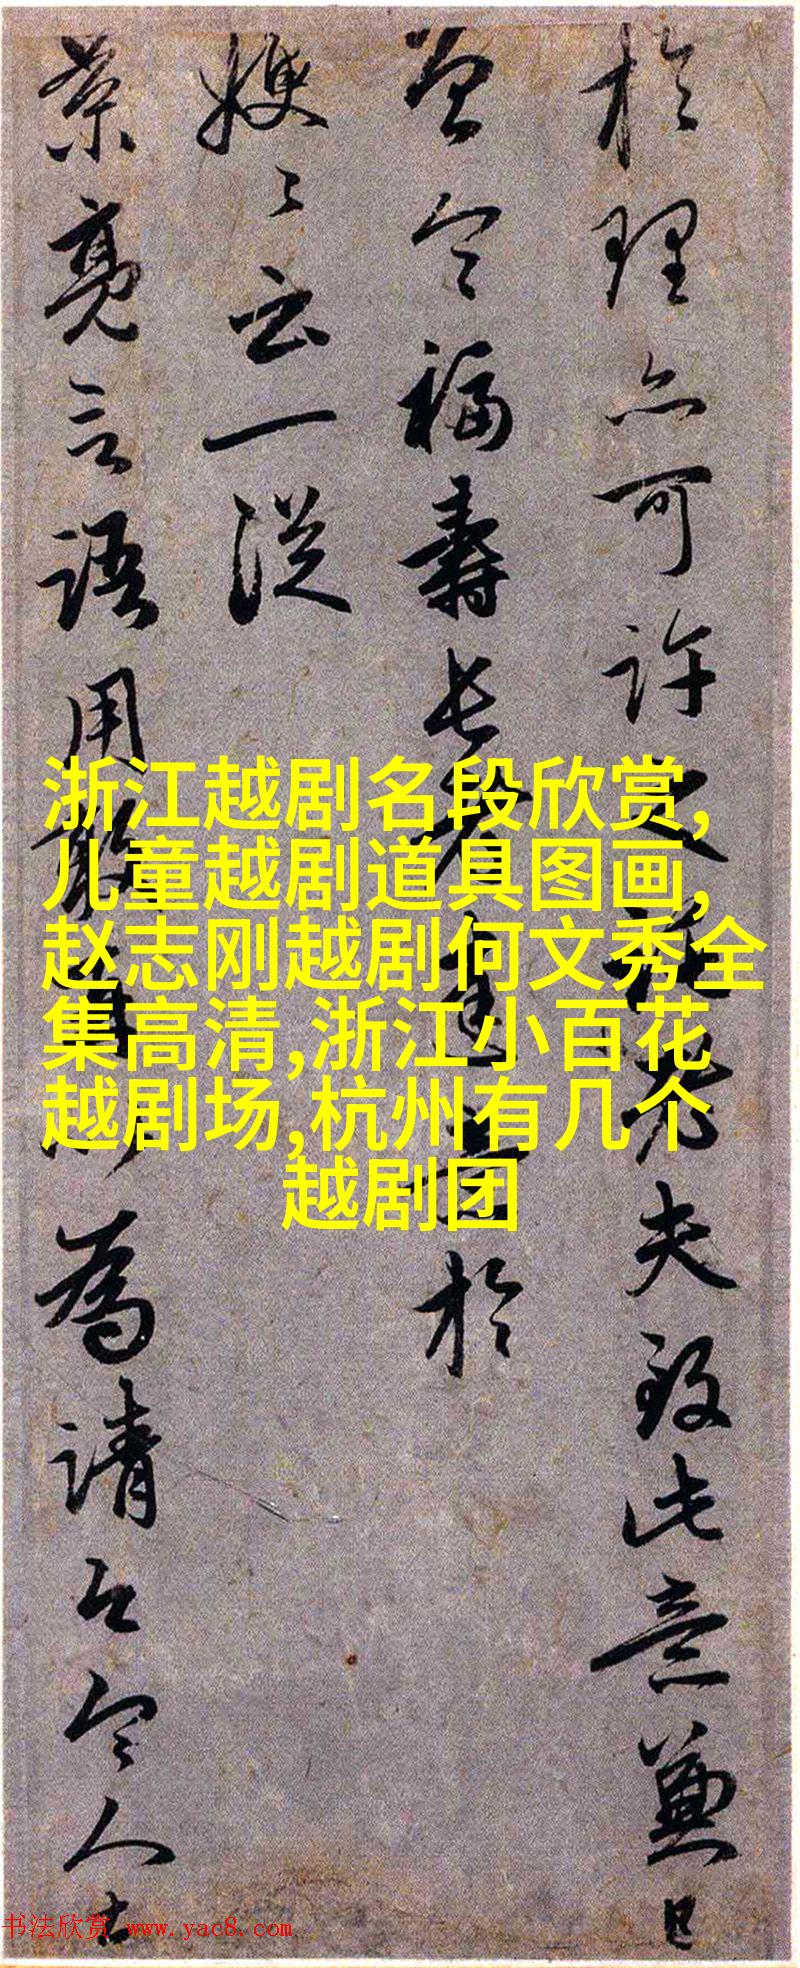 於理亦可許之老夫致此意兼
令福壽長於
嫂〻云一從
景亮言語用敢以為請乞令人
浙江越剧名段欣赏,
儿童越剧道具图画,
赵志刚越剧何文秀全
集高清,浙江小百花
越剧场,杭州有几个
越剧团
书法欣赏 www.yac8.com